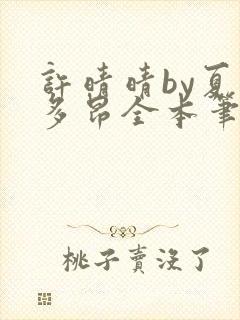 許晴晴by夏
多昂全本筆
桃子賣沒了